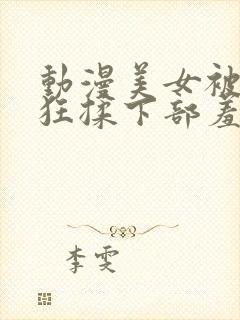 動漫美女被
狂揉下部羞
李雯